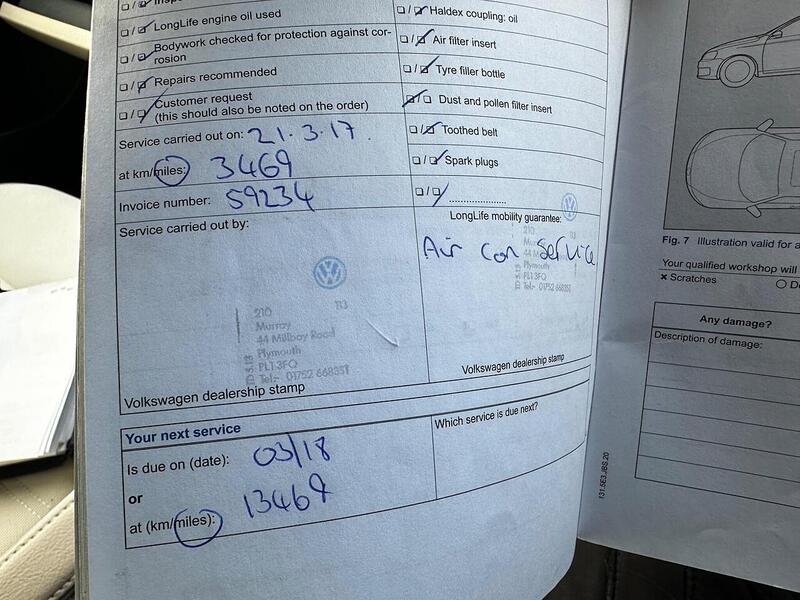 LongLife engine oil used
Bodywork checked for protection against cor-
rosion
Repairs recommended
Customer request
(this should also be noted on the order)
Service carried out on: 21.3.17.
at km/miles: 3469
Invoice number: 59234
Service carried out by:
210 113
Murray
44 Millbay Road
Plymouth
PL1 3FQ
Tel:- 01752 668351
Volkswagen dealership stamp
Haldex coupling: oil
Air filter insert
Tyre filler bottle
Dust and pollen filter insert
Toothed belt
Spark plugs
....................
LongLife mobility guarantee:
Air con service
210 113
Plymouth
PL1 3FQ
Tel:- 01752 668351
Volkswagen dealership stamp
Your next service
Is due on (date): 03/18
or
at (km/miles): 13469
Which service is due next?
131.5E3.JBS.20
Fig. 7 Illustration valid for a
Your qualified workshop will
× Scratches
Any damage?
Description of damage: